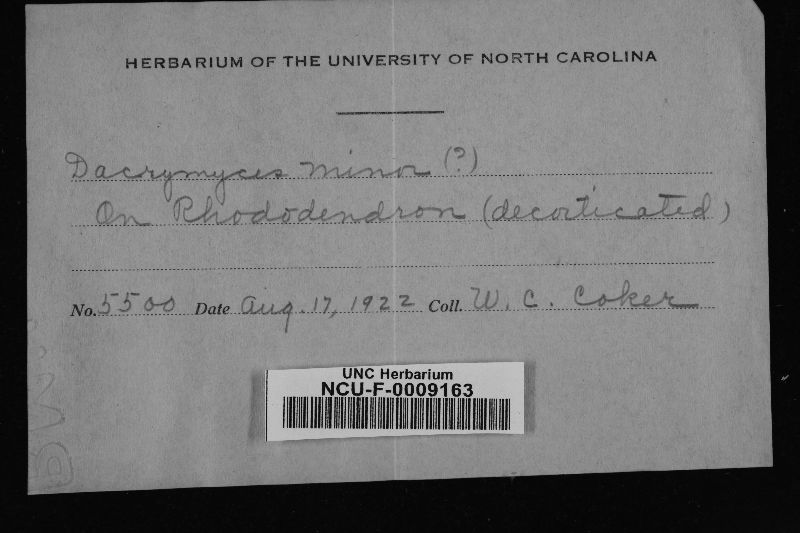 HERBARIUM OF THE UNIVERSITY OF NORTH CAROLINA
Dacrymyces minor (?)
On Rhododendron (decorticated)
No. 5500 Date Aug. 17, 1922 Coll. W. C. Coker
UNC Herbarium
NCU-F-0009163